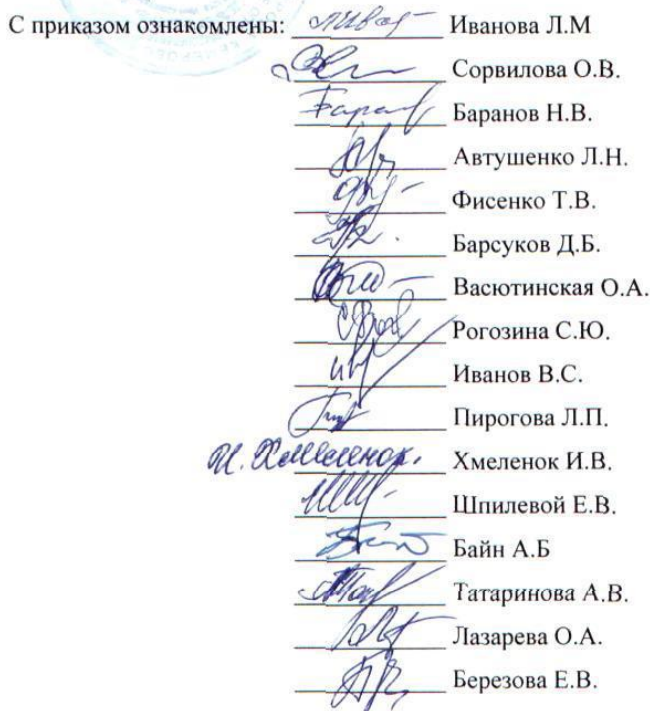 С приказом ознакомлены: Иванова Л.М
Сорвилова О.В.
Баранов Н.В.
Автушенко Л.Н.
Фисенко Т.В.
Барсуков Д.Б.
Васютинская О.А.
Рогозина С.Ю.
Иванов В.С.
Пирогова Л.П.
И. Хмеленок. Хмеленок И.В.
Шпилевой Е.В.
Байн А.Б
Татаринова А.В.
Лазарева О.А.
Березова Е.В.